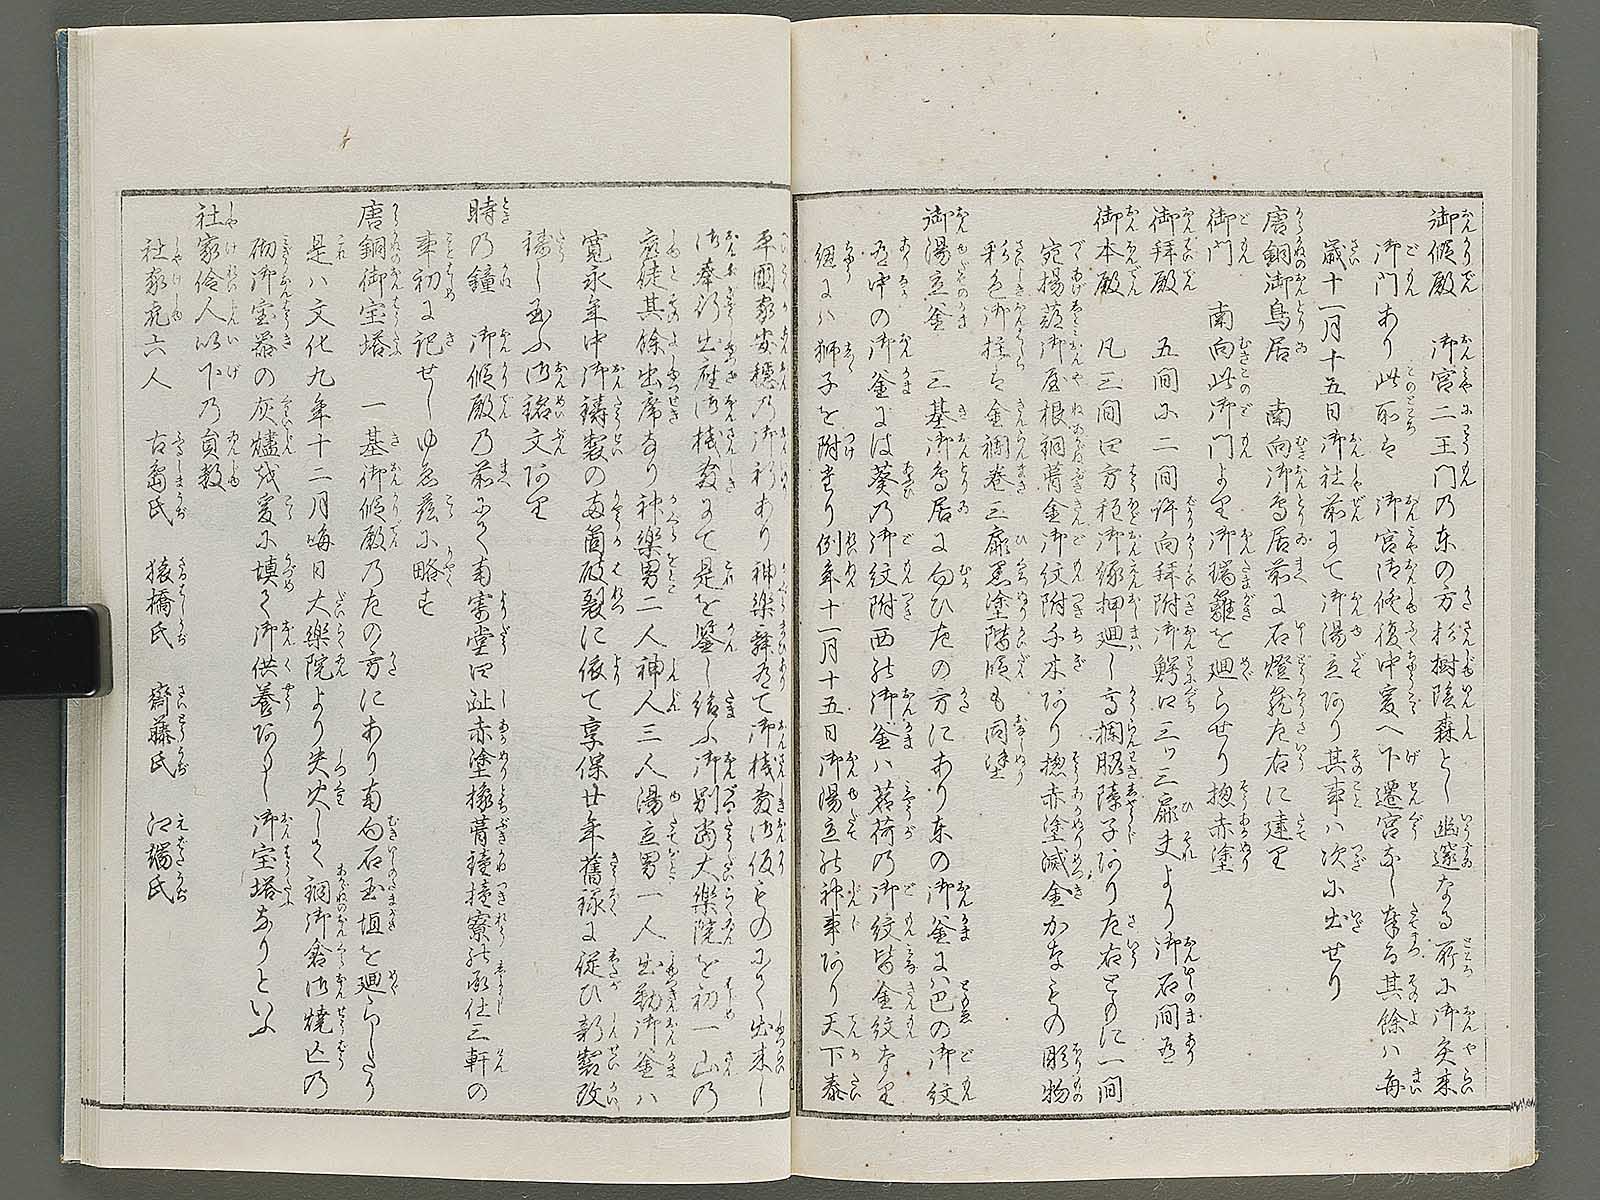 御仮殿　御宮二王門乃東の方杉樹陰森とし幽邃なる所に御矢来
御門あり此所は　御宮御修復中爰へ下遷宮なし奉る其餘ハ毎
歳十一月十五日御社前にて御湯立あり其事ハ次に出せり
唐銅御鳥居　南向御鳥居前に石燈籠左右に建り
御門　南向此御門より御瑞籬を廻らせり惣赤塗
御拝殿　五間に二間許向拝附御鰐口三ツ三扉夫より御石間有
御本殿　凡三間四方程御縁押廻し高欄脇障子あり左右ともに一間
宛揚蔀御屋根銅葺金御紋附千木あり惣赤塗滅金かなもの彫物
彩色御柱は金襴巻三扉黒塗階段も同塗
御湯立釜　三基御鳥居に向ひ左の方にあり東の御釜にハ巴の御紋
有中の御釜には葵乃御紋附西の御釜ハ茗荷乃御紋皆金紋なり
纽にハ獅子を附たり例年十一月十五日御湯立の神事あり天下泰
平國家安穏乃御祈あり神楽舞有て御桟敷御仮ものにて出来し
御奉行出座御桟敷にて是を鑒し給ふ御別当大楽院を初一山の
衆徒其餘出席あり神楽男二人神人三人湯立男一人出勤御釜ハ
寛永年中御鋳製の両箇破裂に依て享保廿年舊録に従ひ新製改
鋳し玉ふ御銘文あり
時乃鐘　御仮殿乃前にて東常堂四趾赤塗椽葺鐘撞寮の承仕三軒の
事初に記せしゆゑ茲に略す
唐銅御宝塔　一基御仮殿乃左の方にあり南向石玉垣を廻らしたり
是ハ文化九年十二月晦日大楽院より失火して銅御倉御焼亡乃
砌御宝器の灰燼を爰に填て御供養ありし御宝塔なりといふ
社家伶人以下乃員数
社家六人　古嶌氏　猿橋氏　齋藤氏　江端氏